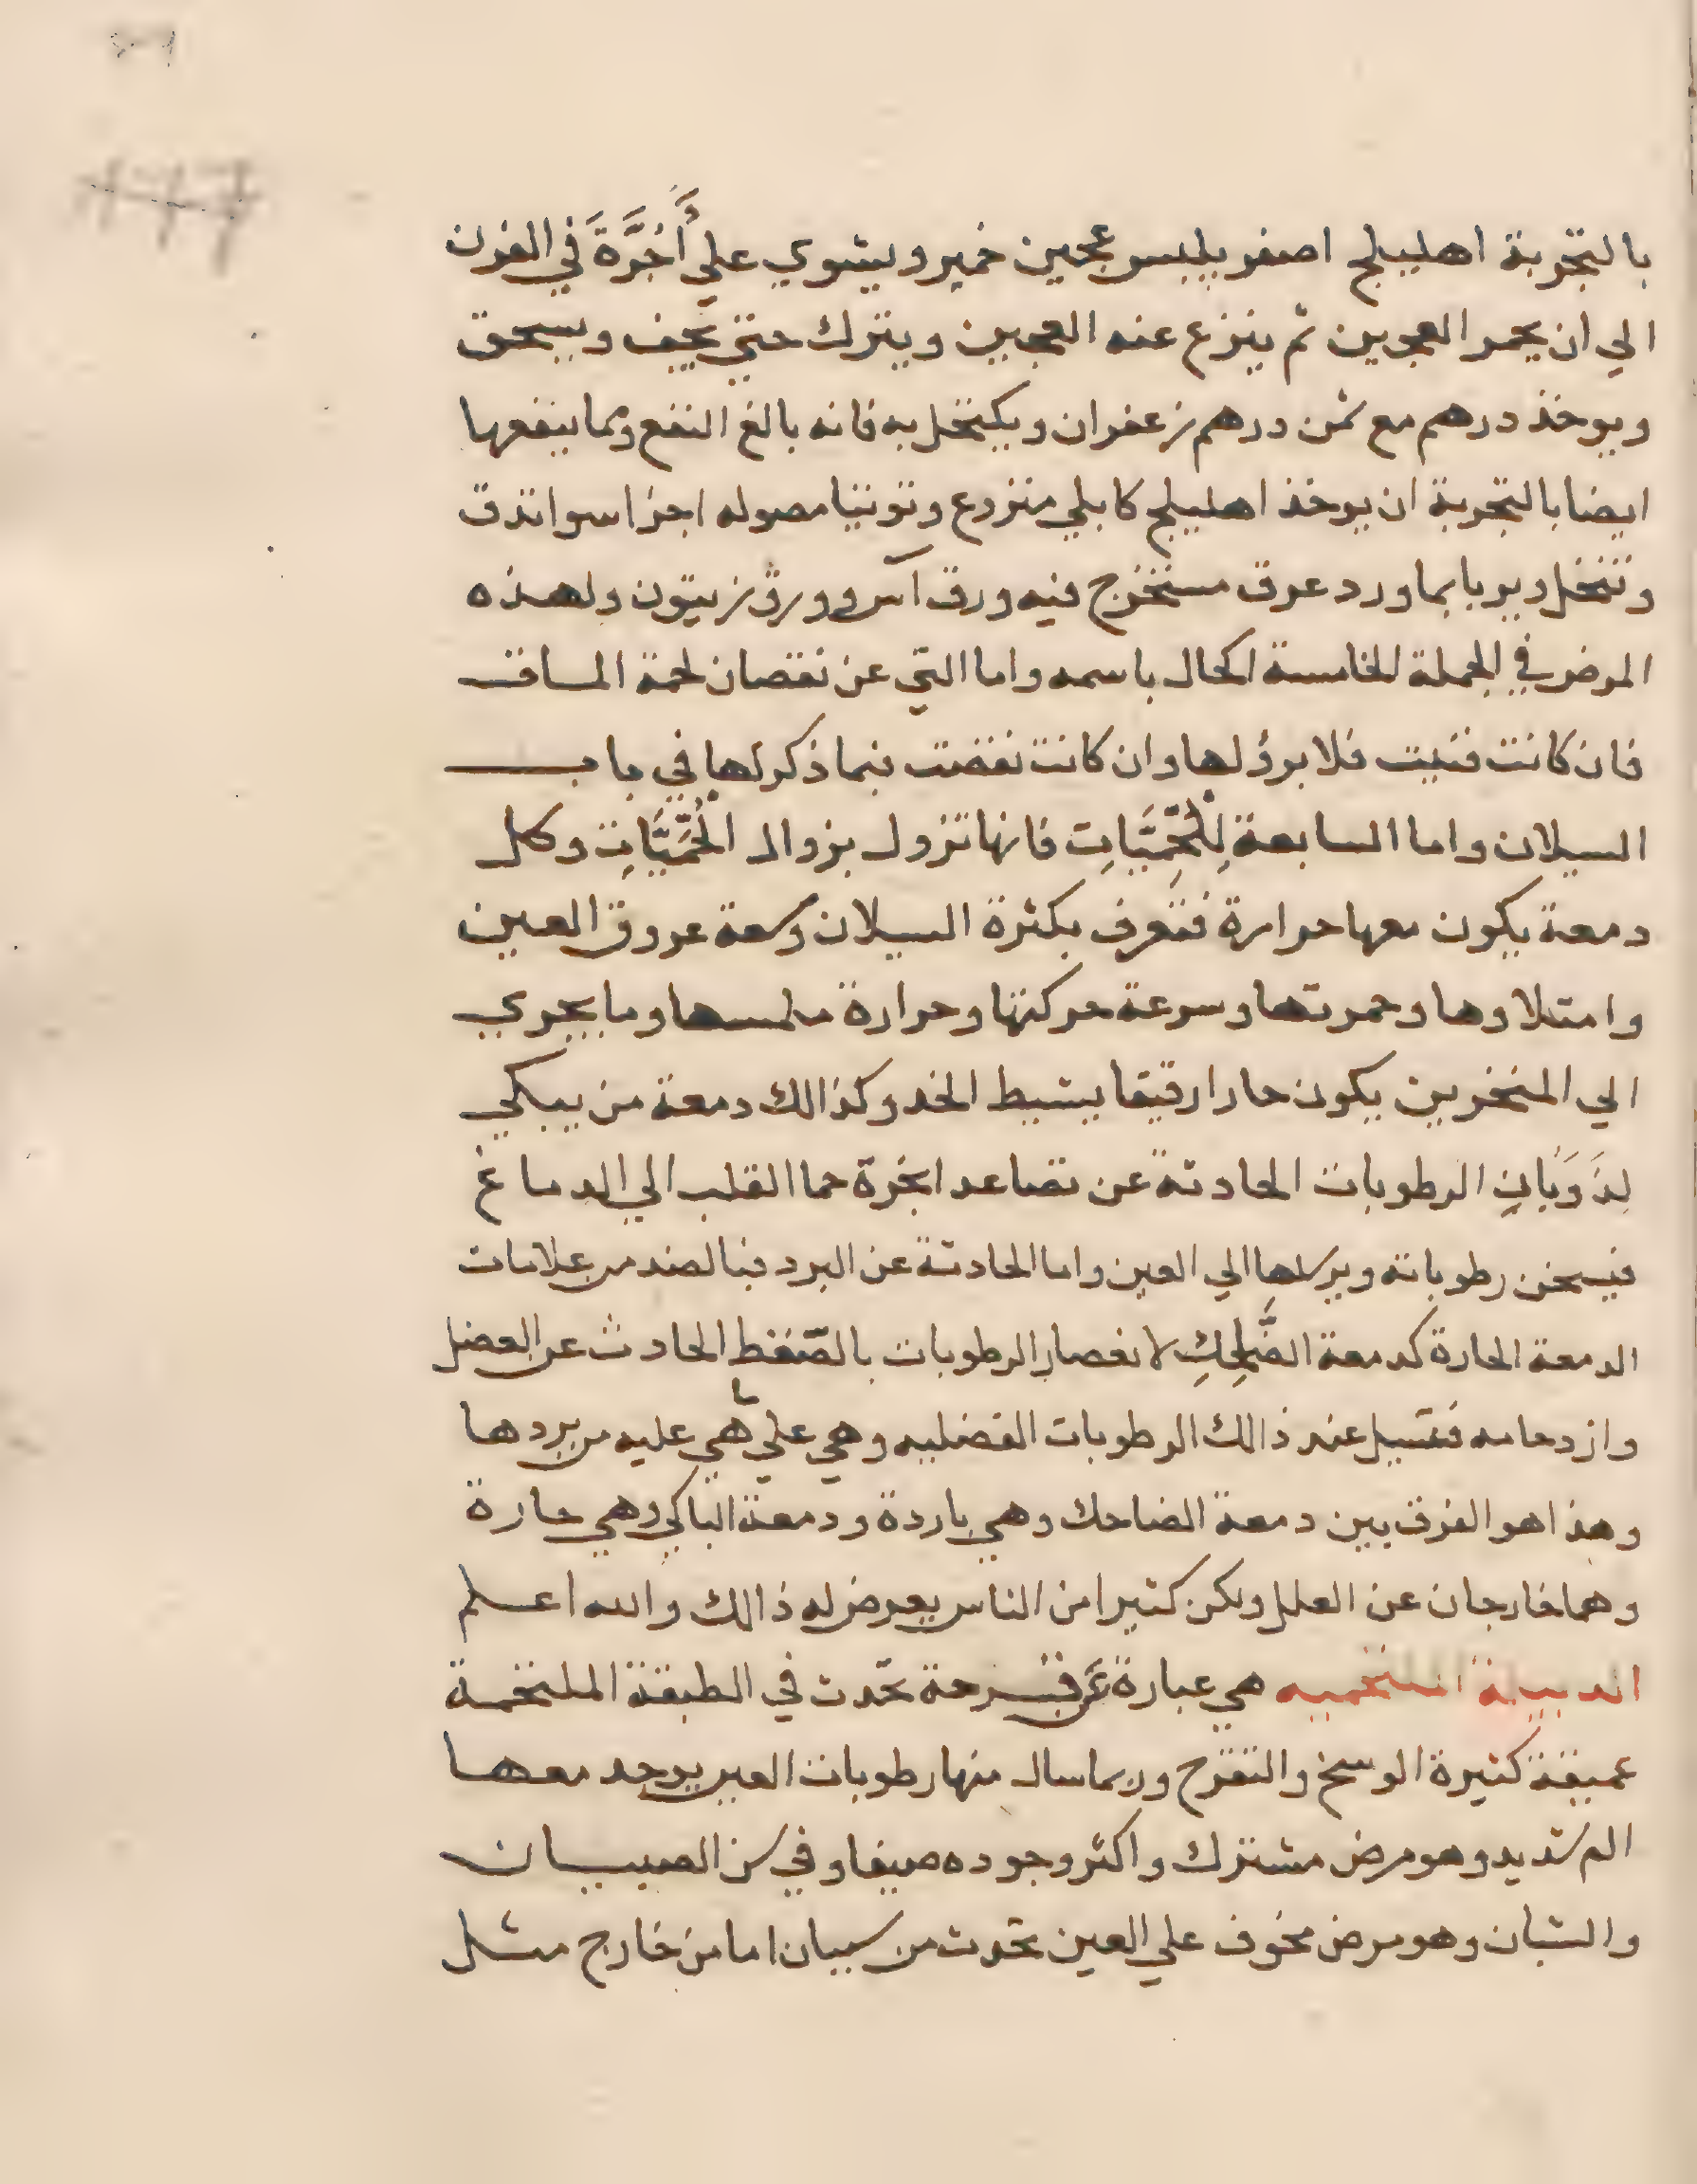 بالتجربة اهليلج اصفر يلبس عجين خمير ويشوي علي أَجُرَّةَ في الفرن
الي ان يحمر العجين ثم ينزع عنه العجين ويترك حتي يجف ويسحق
ويوخذ درهم مع ثمن درهم زعفران ويكتحل به فانه بالغ النفع ومما ينفعها
ايضا بالتجربة ان يوخذ اهليلج كابلي منزوع وتوتيا مصوله اجزا سوا تدق
وتنخل ويربا بماورد عرق مستخرج فيه ورق آس وورق زيتون ولهذه
المرض في الجملة الخامسة الكحال باسمه واما التي عن نقصان لحمة الماق
فان كانت فنيت فلا برؤ لها وان كانت نقصت فبما ذكر لها في باب
السيلان واما السابعة لِلْحُمِّيَّاتِ فانها تزول بزوال الحُمِّيَّاتِ وكل
دمعة يكون معها حرارة فتعرف بكثرة السيلان وسعة عروق العين
وامتلاوها وحمرتها وسرعة حركتها وحرارة ملمسها وما يجري
الي المنخرين يكون حارا رقيقا يشيط الخد وكذالك دمعة من يبكي
لِذَوَبَانِ الرطوبات الحادثة عن تصاعد ابخرة حما القلب الي الدماغ
فيسخن رطوباته ويرسلها الي العين واما الحادثة عن البرد فبالضد من علامات
الدمعة الحارة كدمعة الضَّاحِكِ لانعصار الرطوبات بالضّغط الحادث عن العضل
وازدحامه فتسيل عند ذالك الرطوبات الفضليه وهي علي ما هي عليه من بردها
وهذا هو الفرق بين دمعة الضاحك وهي باردة ودمعة الباكي وهي حارة
وهما خارجان عن العلل ولكن كثيرا من الناس يعرض له ذالك والله اعلم
الدبيلة الملتحميه هي عبارة عَن قرحة تحدث في الطبقة الملتحمة
عميقة كثيرة الوسخ والتقرح وربما سال منها رطوبات العين يوجد معها
الم شديد وهو مرض مشترك واكثر وجوده صيفا وفي سن الصبيان
والشبان وهو مرض مخوف علي العين تحدث من سببان اما من خارج مثل